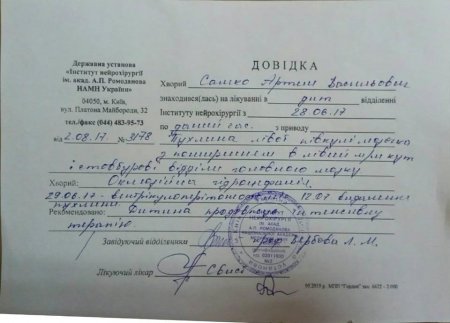 Державна установа
«Інститут нейрохірургії
ім. акад. А.П. Ромоданова
НАМН України»
04050, м. Київ,
вул. Платона Майбороди, 32
тел./факс (044) 483-95-73
від 2.08.17 № 3178
ДОВІДКА
Хворий Сашко Артем Васильович
знаходився(лась) на лікуванні в дит. відділенні
Інституту нейрохірургії з 28.06.17
по даний час з приводу
Пухлина лівої півкулі мозочка
з поширенням в лівий м-м кут
і стовбурові відділи головного мозку
Хворий: Оклюзійна гідроцефалія
29.06.17 - вентрикулоперітонеостомія 12.07 видалення
пухлини
Рекомендовано: Дитина продовжує інтенсивну
терапію
Завідуючий відділенням проф. Вербова Л. М.
Лікуючий лікар